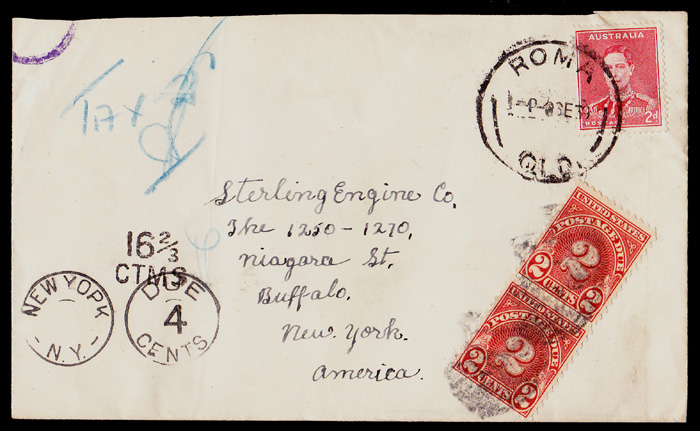 AUSTRALIA
POSTAGE
2d
ROMA
QLD
Tax
Sterling Engine Co.
The 1250 - 1270,
Niagara St.
Buffalo.
New York.
America.
16 2/3
CTMS
NEW YORK
N.Y.
DUE
4
CENTS
UNITED STATES
POSTAGE DUE
2
2 CENTS 2
UNITED STATES
POSTAGE DUE
2
2 CENTS 2